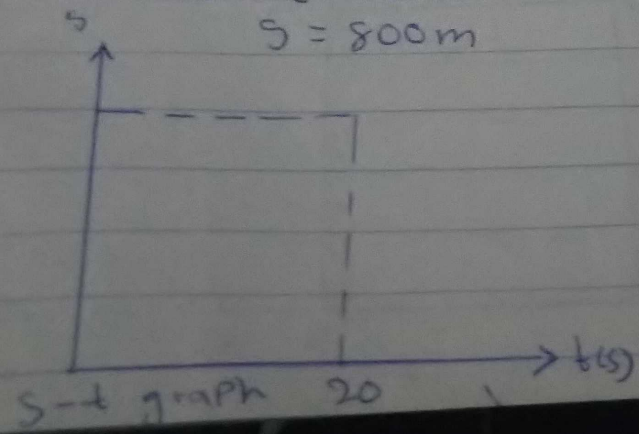 S = 800m
s
t(s)
S-t graph 20